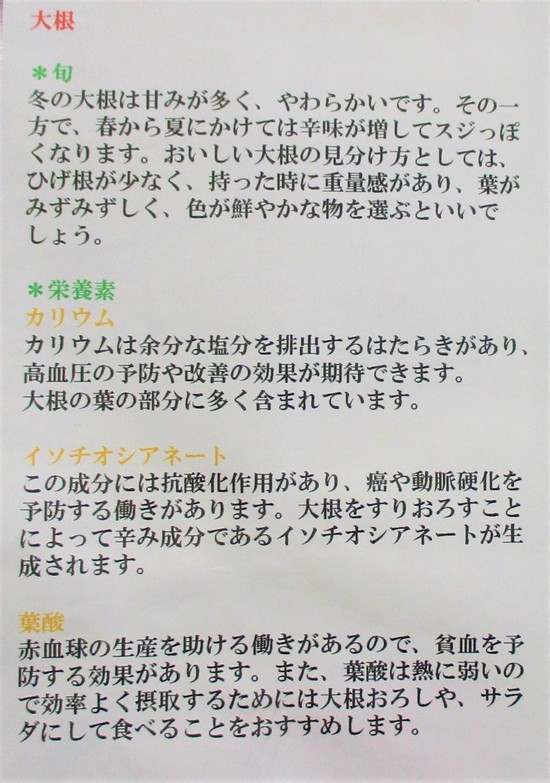 大根
＊旬
冬の大根は甘みが多く、やわらかいです。その一
方で、春から夏にかけては辛味が増してスジっぽ
くなります。おいしい大根の見分け方としては、
ひげ根が少なく、持った時に重量感があり、葉が
みずみずしく、色が鮮やかな物を選ぶといいで
しょう。
＊栄養素
カリウム
カリウムは余分な塩分を排出するはたらきがあり、
高血圧の予防や改善の効果が期待できます。
大根の葉の部分に多く含まれています。
イソチオシアネート
この成分には抗酸化作用があり、癌や動脈硬化を
予防する働きがあります。大根をすりおろすこと
によって辛み成分であるイソチオシアネートが生
成されます。
葉酸
赤血球の生産を助ける働きがあるので、貧血を予
防する効果があります。また、葉酸は熱に弱いの
で効率よく摂取するためには大根おろしや、サラ
ダにして食べることをおすすめします。